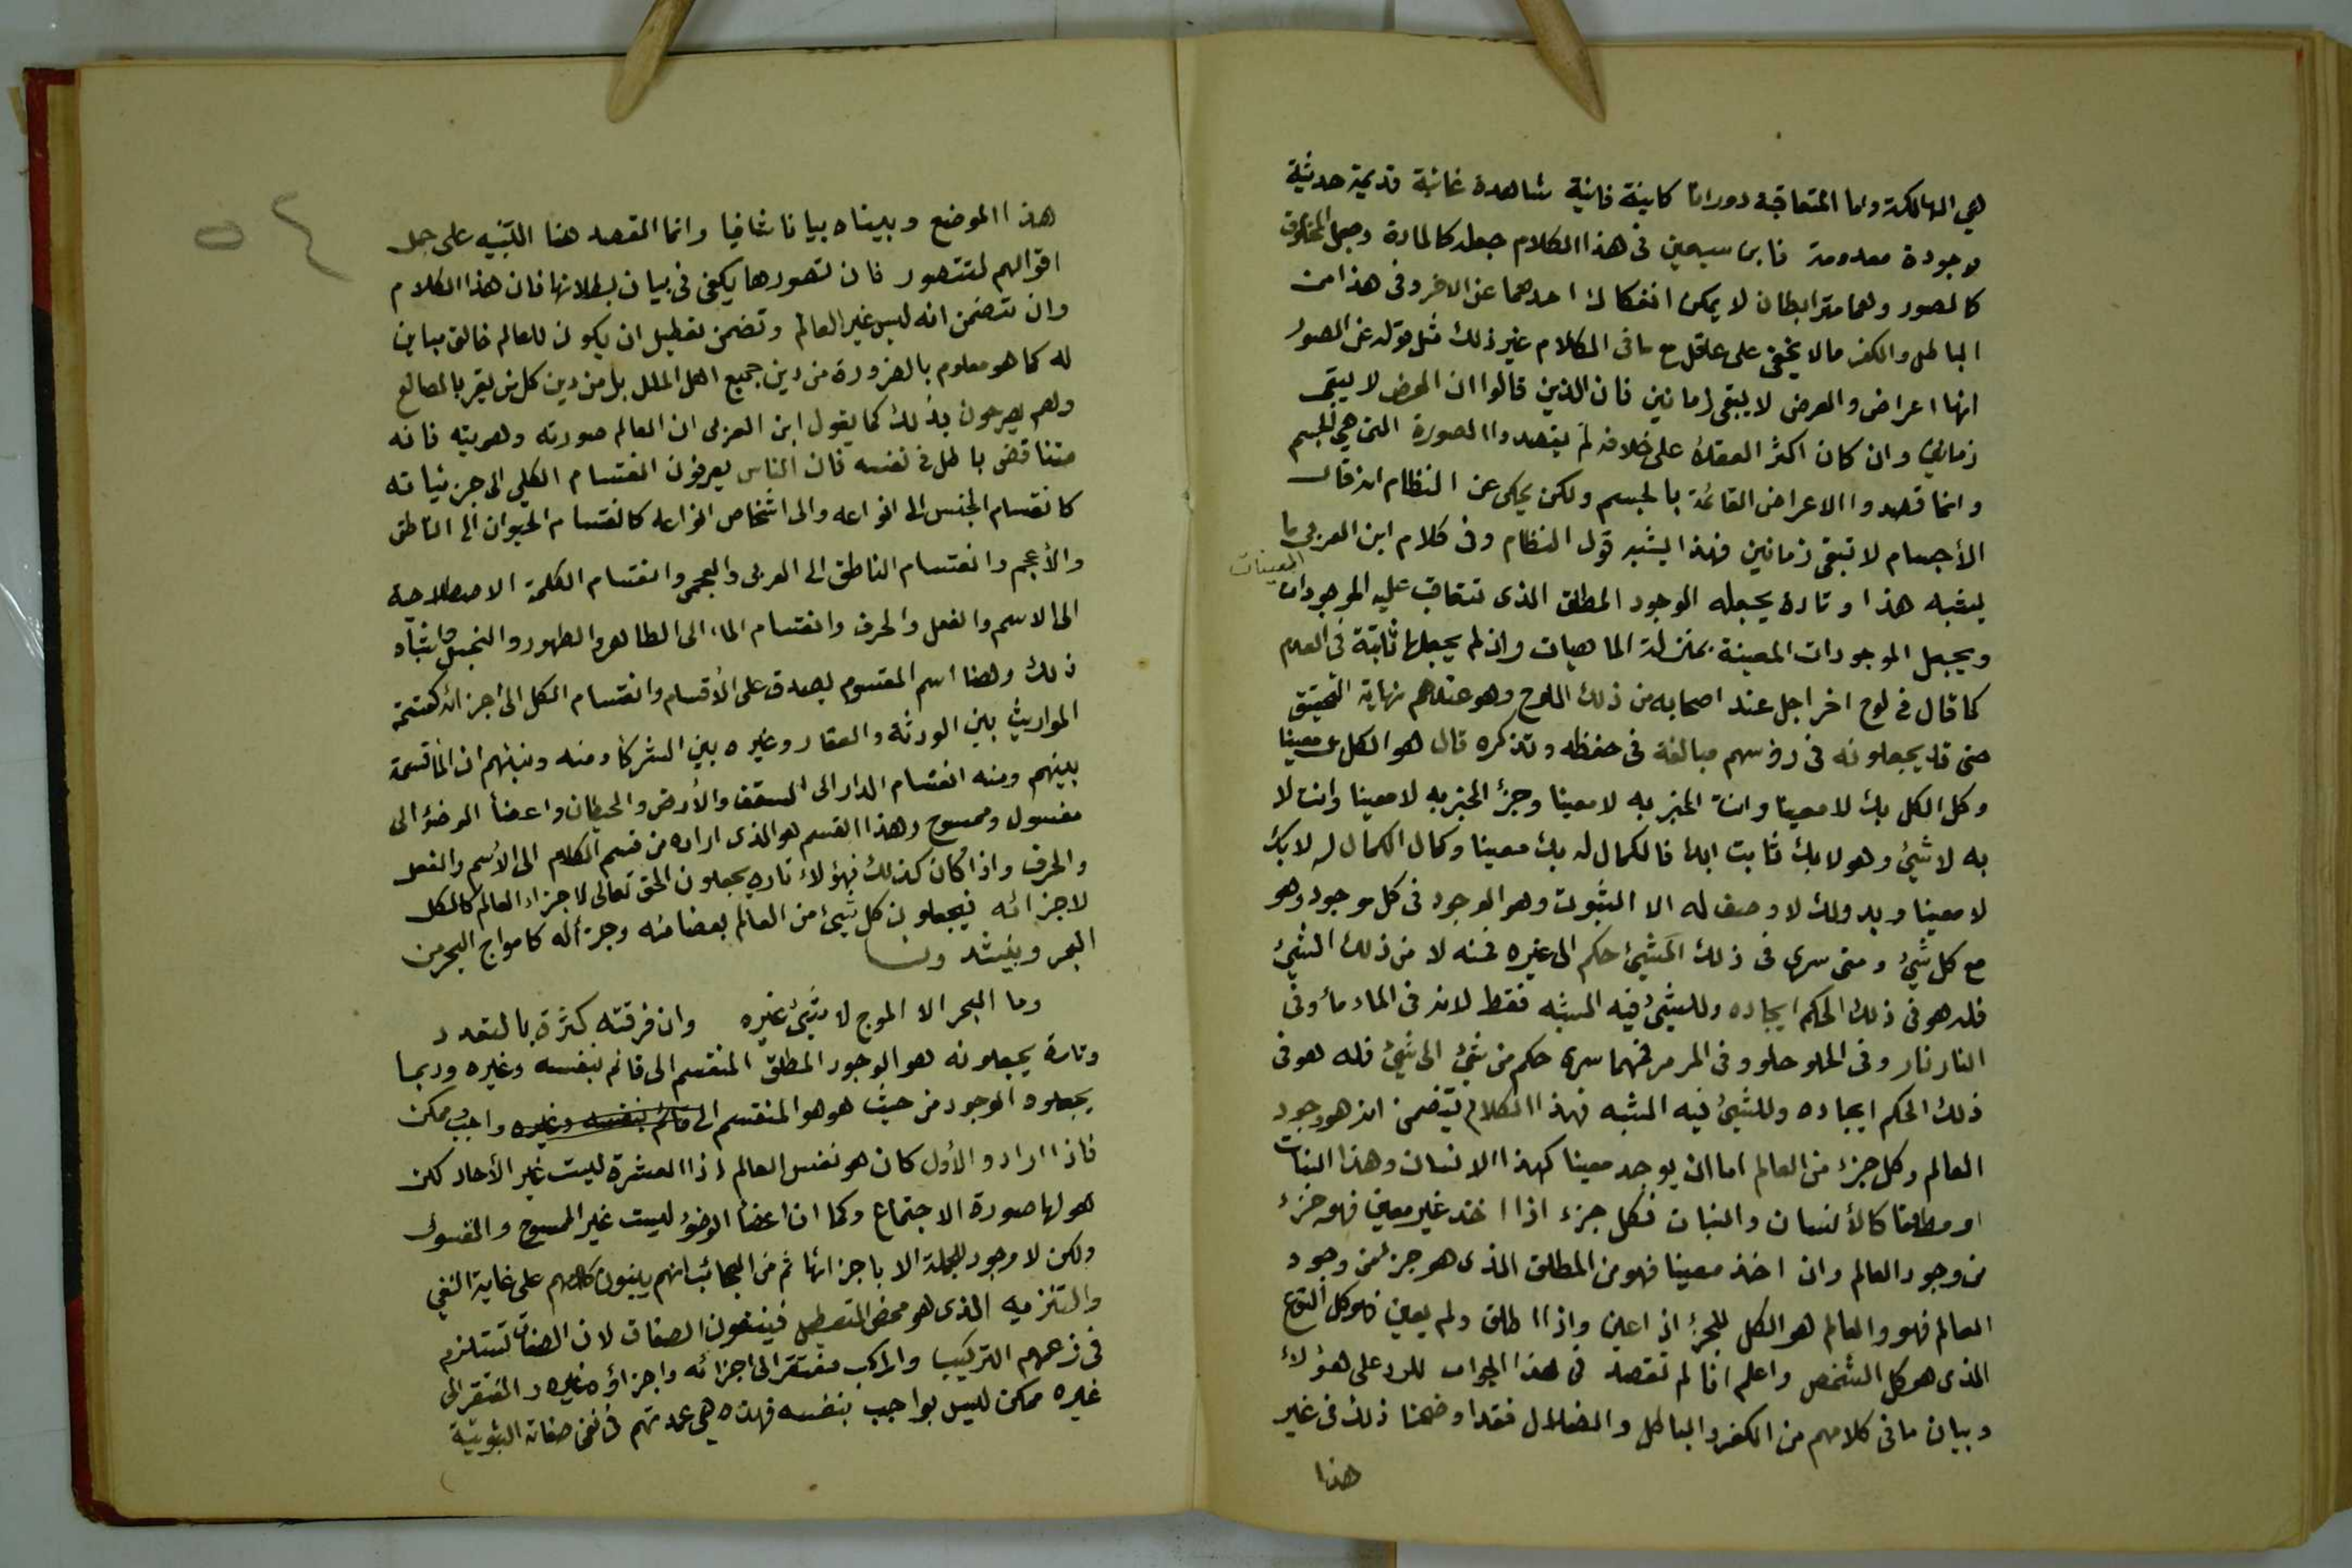 هي الهالكة واما المتعاقبة دورانا كاينة فانية شاهدة غائبة قديمة حديثة
موجودة معدومة فابن سبعين في هذا الكلام جعله كالمادة وجعل المخلوق
كالصور وهما مترابطان لا يمكن انفكاك احدهما عن الاخر وفي هذا من
الباطل والكفر مالا يخفى على عاقل مع ما في الكلام غير ذلك مثل قوله عن الصور
انها اعراض والعرض لا يبقى زمانين فان الذين قالوا ان العرض لا يبقى
زمانين وان كان اكثر العقلاء على خلافه لم يقصدوا الصورة التي هي الجسم
وانما قصدوا الاعراض القائمة بالجسم ولكن يحكى عن النظام انه قال
الأجسام لا تبقى زمانين فهذا يشبه قول النظام وفي كلام ابن العربي ما
يشبه هذا وتارة يجعله الوجود المطلق الذي تتعاقب عليه الموجودات
المعينات
ويجعل الموجودات المعينة بمنزلة الماهيات وان لم يجعلها ثابتة في العدم
كما قال في لوح اخر اجل عند اصحابه من ذلك اللوح وهو عندهم نهاية التحقيق
حتى قد يجعلونه في رؤسهم مبالغة في حفظه وتذكره قال هو الكل معينا
وكل الكل بك لا معينا وانت الخبر به لا معينا وجزء الخبر به لا معينا وانت لا
به لا شيئ وهو لا بك ثابت ابدا فالكمال له بك معينا وكمال الكمال له لا بك
لا معينا وبدولك لا وصف له الا الثبوت وهو الوجود في كل موجود وهو
مع كل شيئ ومتى سرى في ذلك الشيئ حكم الى غيره فمنه لا من ذلك الشيئ
فله هو في ذلك الحكم ايجاده وللشيئ فيه الشبه فقط لانه في الماء ماء وفي
النار نار وفي الحلو حلو وفي المر مر فمهما سرى حكم من شيئ الى شيئ فله هو في
ذلك الحكم ايجاده وللشيئ فيه الشبه فهذا الكلام يتضمن انه هو وجود
العالم وكل جزء من العالم اما ان يوجد معينا كهذا الانسان وهذا النبات
او مطلقا كالأنسان والنبات فكل جزء اذا اخذ غير معين فهو جزء
من وجود العالم وان اخذ معينا فهو من المطلق الذي هو جزء من وجود
العالم فهو والعالم هو الكل للجزء اذا عين واذا اطلق ولم يعين فهو كل النوع
الذي هو كل الشخص واعلم انا لم نقصد في هذا الجواب للرد على هؤلاء
وبيان ما في كلامهم من الكفر والباطل والضلال فقد اوضحنا ذلك في غير
هذا
٥٤
هذا الموضع وبيناه بيانا شافيا وانما القصد هنا التنبيه على جمل
اقوالهم لتتصور فان تصورها يكفي في بيان بطلانها فان هذا الكلام
وان تتضمن انه ليس غير العالم وتضمن تعطيل ان يكون للعالم خالق مباين
له كما هو معلوم بالضرورة من دين جميع اهل الملل بل من دين كل من يقر بالصانع
وهم يصرحون بذلك كما يقول ابن العربي ان العالم صورته وهويته فانه
متناقض باطل في نفسه فان الناس يعرفون انقسام الكلي الى جزئياته
كانقسام الجنس الى انواعه والى اشخاص انواعه كانقسام الحيوان الى الناطق
والأعجم وانقسام الناطق الى العربي والعجمي وانقسام الكلمة الاصطلاحية
الى الاسم والفعل والحرف وانقسام الماء الى الطاهر والطهور والنجس واشباه
ذلك وهنا اسم المقسوم يصدق على الأقسام وانقسام الكل الى اجزائه كقسمة
المواريث بين الورثة والعقار وغيره بين الشركاء ومنه ونبئهم ان الماء قسمة
بينهم ومنه انقسام الدار الى السقف والأرض والحيطان واعضاء الوضوء الى
مغسول وممسوح وهذا القسم هو الذي اراده من قسم الكلام الى الاسم والفعل
والحرف واذا كان كذلك فهؤلاء تارة يجعلون الحق تعالى لاجزاء العالم كالكل
لاجزائه فيجعلون كل شيئ من العالم بعضا منه وجزأ له كامواج البحر من
البحر وينشدون
وما البحر الا الموج لا شيئ غيره وان فرقته كثرة بالتعدد
وتارة يجعلونه هو الوجود المطلق المنقسم الى قائم بنفسه وغيره وربما
يجعلوه الوجود من حيث هو هو المنقسم الى قائم بنفسه وغيره واجب وممكن
فاذا ارادوا الأول كان هو نفس العالم اذا العشرة ليست غير الأحاد لكن
هو لها صورة الاجتماع وكما ان اعضاء الوضوء ليست غير الممسوح والمغسول
ولكن لا وجود للجملة الا باجزائها ثم من العجائب انهم يبنون كلامهم على غاية النفي
والتنزيه الذي هو محض التعطيل فينفون الصفات لان الصفات تستلزم
في زعمهم التركيب والمركب مفتقر الى اجزائه واجزاؤه غيره والمفتقر الى
غيره ممكن ليس بواجب بنفسه فهذه هي عمدتهم في نفي صفاته الثبوتية